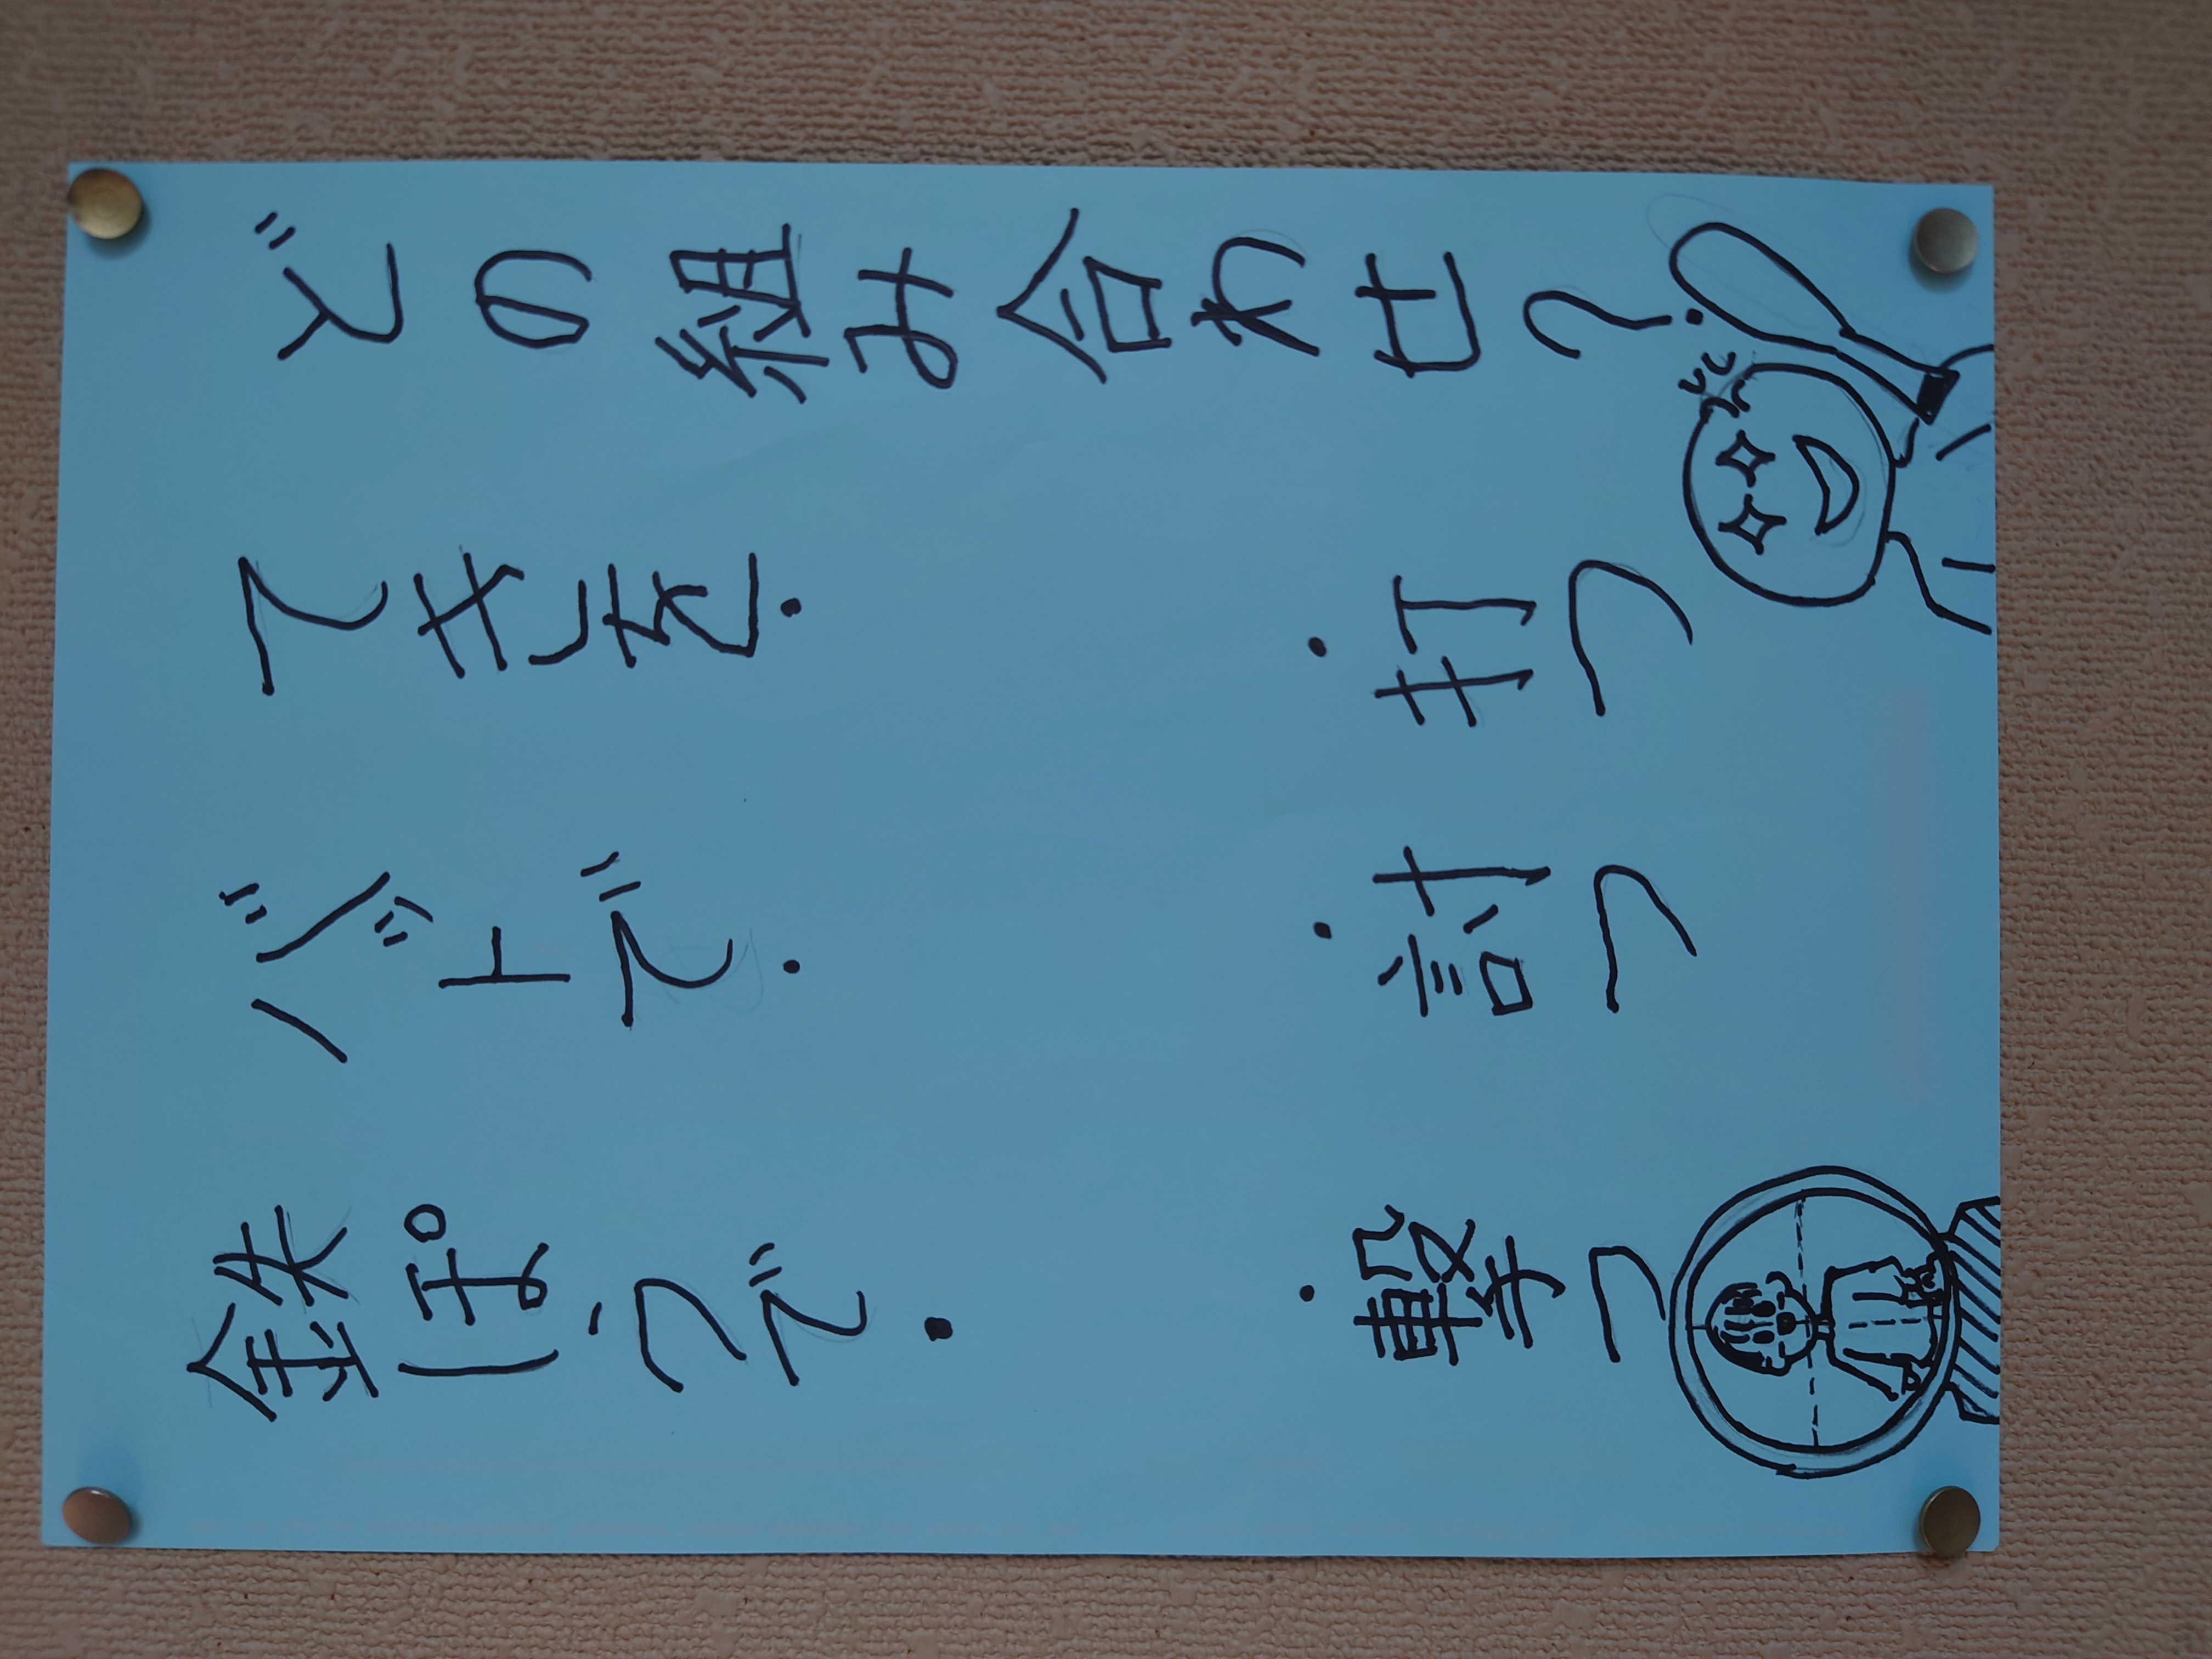 どの組み合わせ?
てきを・　・打つ
バットで・　・討つ
鉄ぽうで・　・撃つ